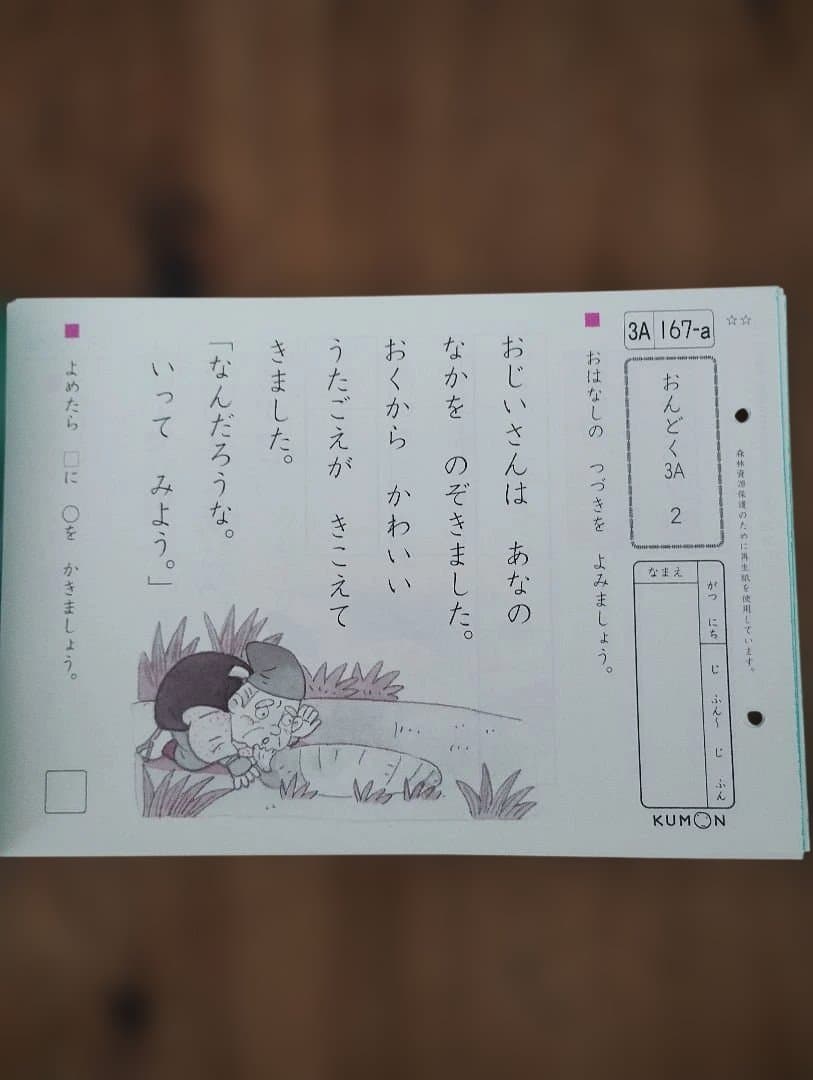 ☆☆
森林資源保護のために再生紙を使用しています。
3A 167-a
おんどく3A 2
がつ にち じ ふん〜 じ ふん
なまえ
KUMON
■ おはなしの つづきを よみましょう。
おじいさんは あなの
なかを のぞきました。
おくから かわいい
うたごえが きこえて
きました。
「なんだろうな。
いって みよう。」
■ よめたら □に ○を かきましょう。